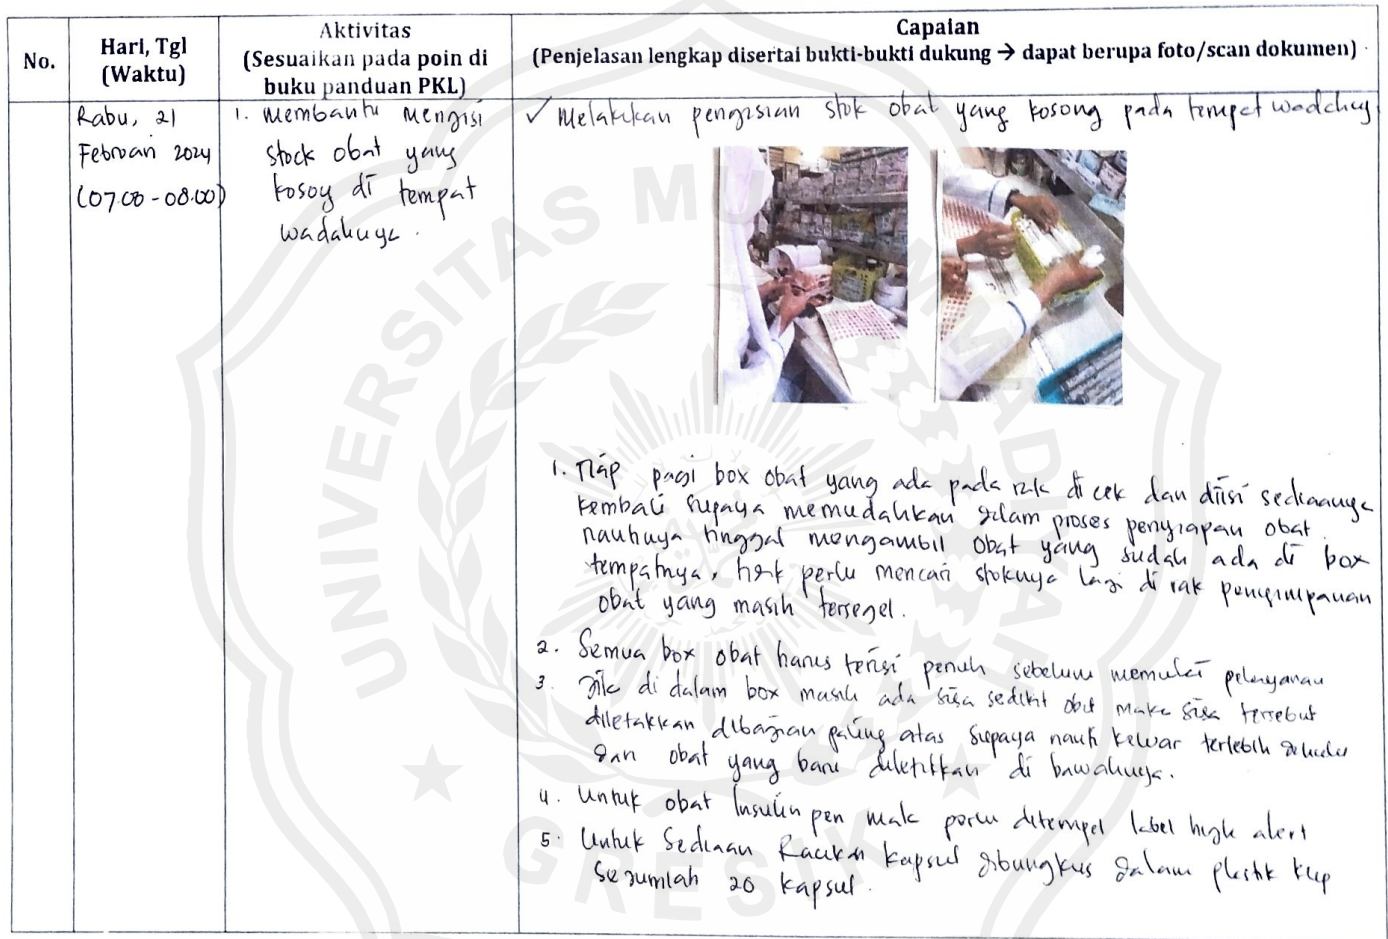 No.
Hari, Tgl
(Waktu)
Aktivitas
(Sesuaikan pada poin di
buku panduan PKL)
Capaian
(Penjelasan lengkap disertai bukti-bukti dukung → dapat berupa foto/scan dokumen)
Rabu, 21
Februari 2024
(07.00 - 08.00)
1. Membantu mengisi
stock obat yang
kosog di tempat
wadahnya.
✓ Melakukan pengisian stok obat yang kosong pada tempat wadahny
1. Tiap pagi box obat yang ada pada rak di cek dan diisi sediaanya
kembali supaya memudahkan dalam proses penyiapan obat.
nantinya tinggal mengambil obat yang sudah ada di box
tempatnya, tidak perlu mencari stoknya lagi di rak penyimpanan
obat yang masih tersegel.
2. Semua box obat harus terisi penuh sebelum memulai pelayanan
3. Jika di dalam box masih ada sisa sedikit obat maka sisa tersebut
diletakkan dibagian paling atas supaya nanti keluar terlebih dahulu
dan obat yang baru diletakkan di bawahnya.
4. Untuk obat Insulin pen maka perlu ditempel label high alert
5. Untuk Sediaan Racikan kapsul dibungkus dalam plastik klip
Sejumlah 20 kapsul.
UNIVERSITAS MUHAMMADIYAH
GRESIK